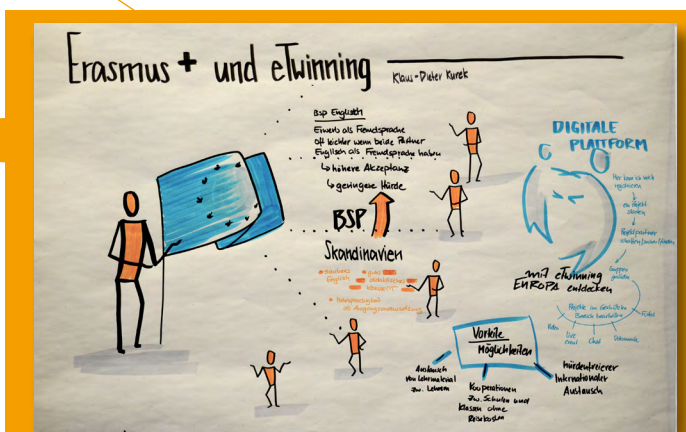 Erasmus + und eTwinning
Klaus-Dieter Kurek
Bsp Englisch
Erwerb als Fremdsprache
oft leichter wenn beide Partner
Englisch als Fremdsprache haben
↳ höhere Akzeptanz
↳ geringere Hürde
BSP
Skandinavien
Englisch
DIGITALE
PLATTFORM
registrieren
ein Projekt
starten
Projektpartner
Gruppen
mit eTwinning
EUROPA entdecken
Projekte im Geschützten
Bereich bearbeiten
Chat
Dokumente
Vorteile
Möglichkeiten
Austausch
von Lehrmaterial
zw. Lehrern
Kooperationen
zw. Schulen und
Klassen ohne
Reisekosten
hürdenfreierer
Internationaler
Austausch